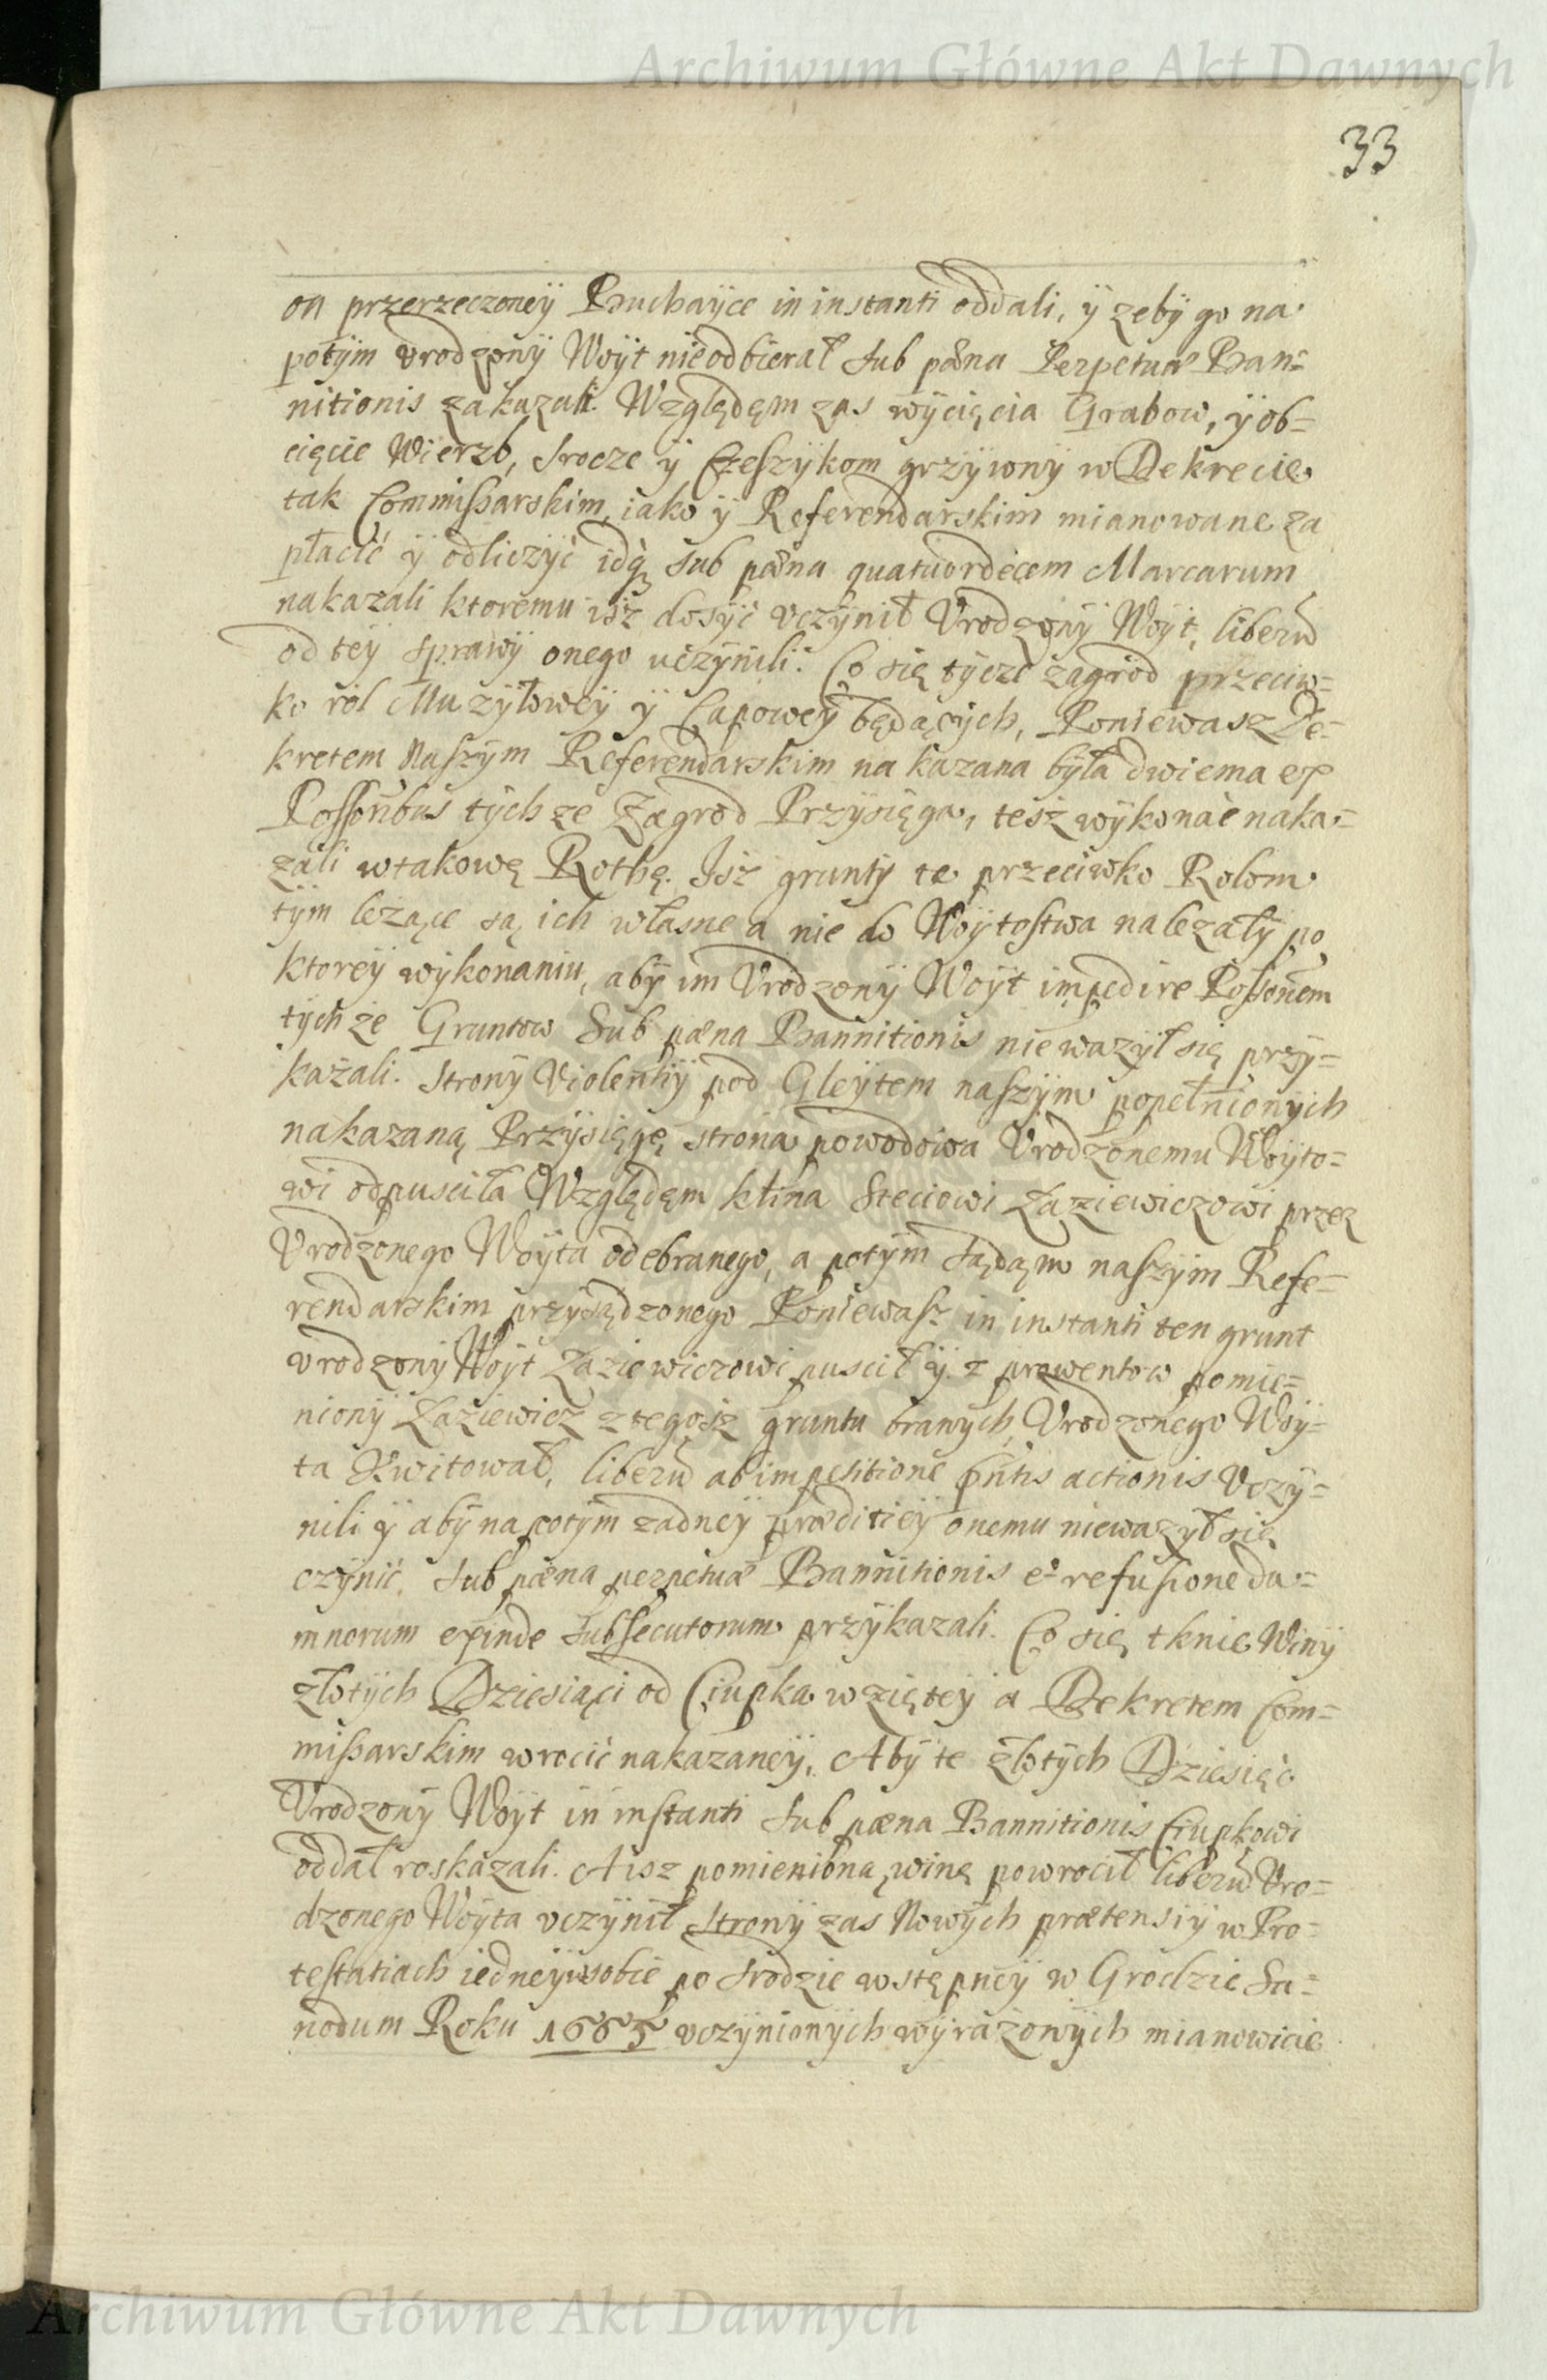 Archiwum Główne Akt Dawnych
33
on przerzeczoneÿ Buchaÿce in instanti oddali, ÿ zebÿ go na
potÿm vrodzonÿ Woÿt nieodbierał sub pæna Perpetuæ Ban=
nitionis zakazali. Względęm zas wÿcięcia Grabow, ÿ ob=
cięcie Wierzb, Srocze ÿ Czeszÿkom grzÿwnÿ w Dekrecie
tak Commissarskim, iako ÿ Referendarskim mianowane za
płacić ÿ odliczÿć idq sub pæna quatuordecem Marcarum
nakazali ktoremu isz dosÿć vczÿnił Vrodzonÿ Woÿt, liberũ
od teÿ sprawÿ onego uczÿnili. Co się tÿcze zagrod przeciw=
ko rol Muzÿłoweÿ ÿ Capoweÿ będącÿch, Poniewasz De=
kretem Naszÿm Referendarskim nakazana bÿła dwiema ex
Possoribus tÿchze Zagrod Przÿsięga, tesz wÿkonać naka=
zali w takowę Rothę. Isz gruntÿ te przeciwko Rolom
tÿm leżące są ich własne a nie do Woÿtostwa nalezałÿ po
ktoreÿ wÿkonaniu, abÿ im Vrodzonÿ Woÿt impedire Possonem
tÿchże Gruntow Sub pæna Bannitionis nie wazÿł się przÿ=
kazali. Stronÿ Violentiÿ pod Gleÿtem naszÿm popełnionych
nakazaną Przÿsięgę strona powodowa Vrodzonemu Woÿto=
wi odpusciła Względęm klina Steciowi Łaziewiczowi przez
Vrodzonego Woÿta odebranego, a potÿm Sądęm naszÿm Refe=
rendarskim przÿsądzonego Poniewasz in instanti ten grunt
vrodzonÿ Woÿt Łaziewiczowi puscił ÿ z prowentow pomie=
nionÿ Łaziewicz z tegosz gruntu branÿch, Vrodzonego Woÿ=
ta Kwitował, liberũ ab impetitione pñtis actionis Vczÿ=
nili ÿ abÿ napotÿm zadneÿ prædicieÿ onemu niewazÿł się
czÿnić, sub pæna perpetuæ Bannitionis et refusione da=
mnorum exinde subsecutorum przÿkazali. Co się tknie Winÿ
złotÿch Dziesiąci od Ciupka wzięteÿ a Dekretem Com=
missarskim wrocić nakazaneÿ, Abÿ te złotÿch Dziesięć
Vrodzonÿ Woÿt in instanti sub pæna Bannitionis Ciupkowi
oddał roskazali. A isz pomieniona winę powrocił liberũ Vro=
dzonego Woÿta vczÿnił Stronÿ zas Nowÿch prætensiÿ w Pro=
testatiach iedneÿ w sobie po Srodzie wstępneÿ w Grodzie Sa=
nodum Roku 1665 vczÿnionÿch wÿrażonÿch mianowicie
Archiwum Główne Akt Dawnych